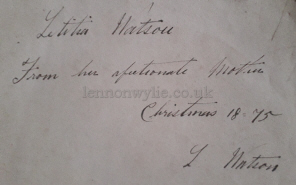 Letitia Watson
From her afectionate Mother
lennonwylie.co.uk
Christmas 18-75
L Watson